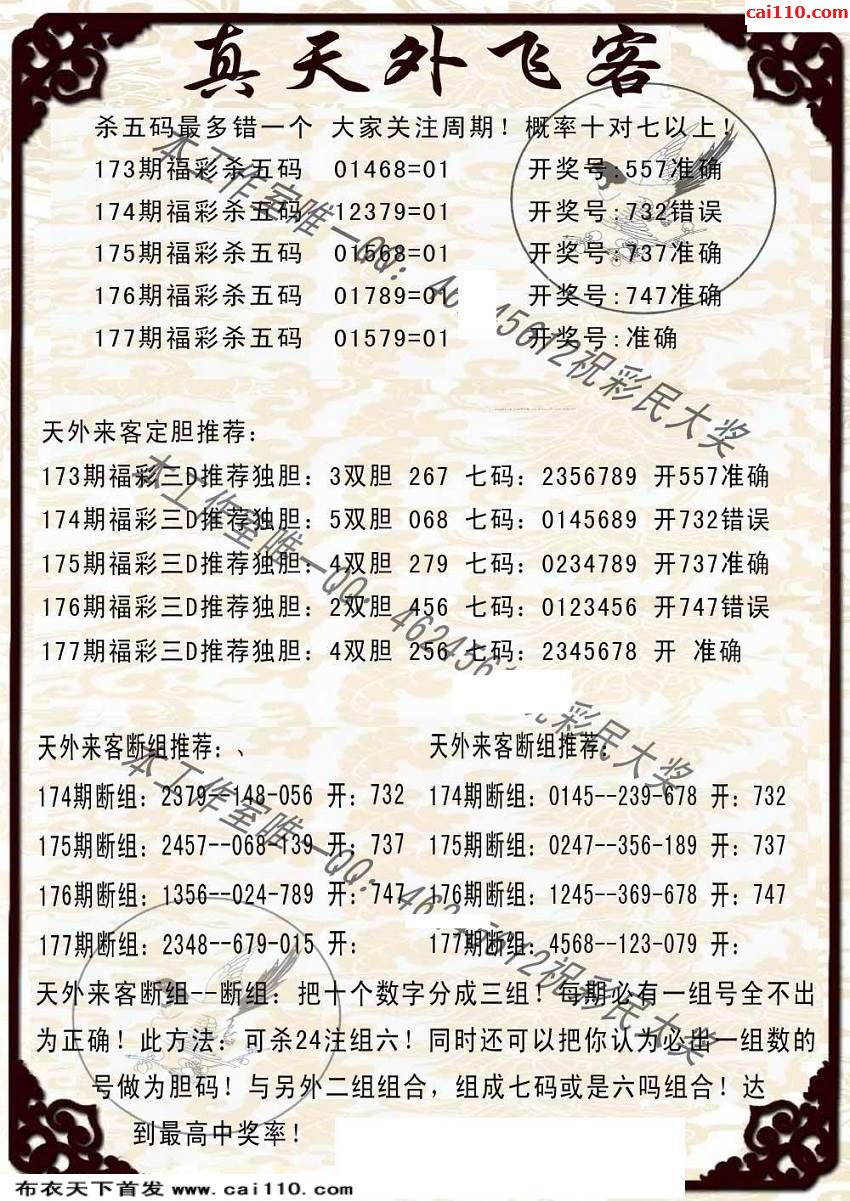 cai110.com
真天外飞客
杀五码最多错一个 大家关注周期！概率十对七以上！
173期福彩杀五码 01468=01 开奖号:557准确
174期福彩杀五码 12379=01 开奖号:732错误
175期福彩杀五码 01568=01 开奖号:737准确
176期福彩杀五码 01789=01 开奖号:747准确
177期福彩杀五码 01579=01 开奖号:准确
天外来客定胆推荐：
173期福彩三D推荐独胆：3双胆 267 七码：2356789 开557准确
174期福彩三D推荐独胆：5双胆 068 七码：0145689 开732错误
175期福彩三D推荐独胆：4双胆 279 七码：0234789 开737准确
176期福彩三D推荐独胆：2双胆 456 七码：0123456 开747错误
177期福彩三D推荐独胆：4双胆 256 七码：2345678 开 准确
天外来客断组推荐：、
174期断组：2379--148-056 开：732
175期断组：2457--068-139 开：737
176期断组：1356--024-789 开：747
177期断组：2348--679-015 开：
天外来客断组推荐：
174期断组：0145--239-678 开：732
175期断组：0247--356-189 开：737
176期断组：1245--369-678 开：747
177期断组：4568--123-079 开：
天外来客断组--断组：把十个数字分成三组！每期必有一组号全不出
为正确！此方法：可杀24注组六！同时还可以把你认为必出一组数的
号做为胆码！与另外二组组合，组成七码或是六吗组合！达
到最高中奖率！
本工作室唯一QQ：46 45612祝彩民大奖
本工作室唯一QQ：462456 彩民大奖
本工作室唯一QQ：462 5612祝彩民大奖
布衣天下首发 www.cai110.com